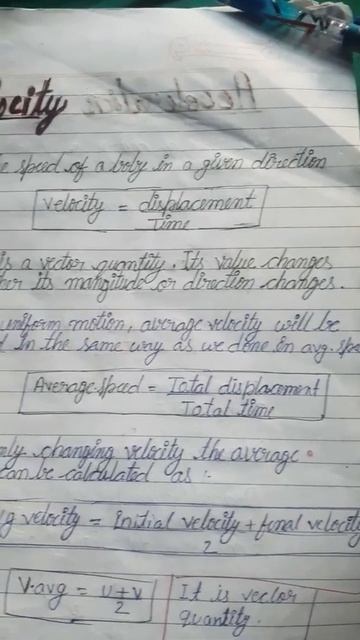 ocity
e speed of a body in a given direction
Velocity = displacement
Time
is a vector quantity. Its value changes
her its mangitude or direction changes.
uniform motion, average velocity will be
d in the same way as we done in avg. spe
Average speed = Total displacement
Total time
mly changing velocity the average
can be calculated as :-
g velocity = initial velocity + final velocity
2
V.avg = u+v
2
It is vector
quantity.